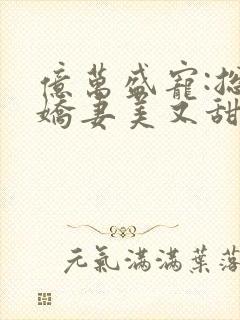 億萬盛寵:總
嬌妻美又甜
元氣滿滿葉落